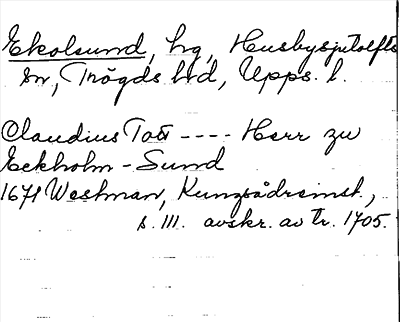 Ekolsund, hg, Husbysjutolfts
sn, Trögds hd, Upps. l.
Claudius Tott ---- Herr zu
Eekholm-Sund
1671 Westman, Kungsådreinst.,
s. III. avskr. av tr. 1705.